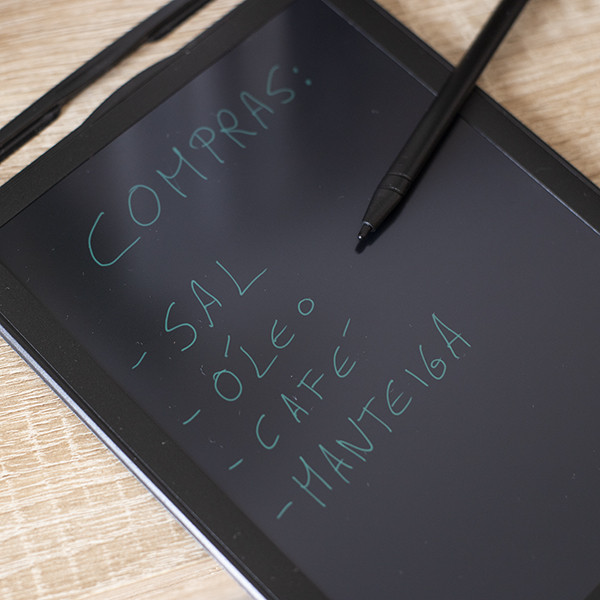 COMPRAS:
- SAL
- ÓLEO
- CAFÉ
- MANTEIGA